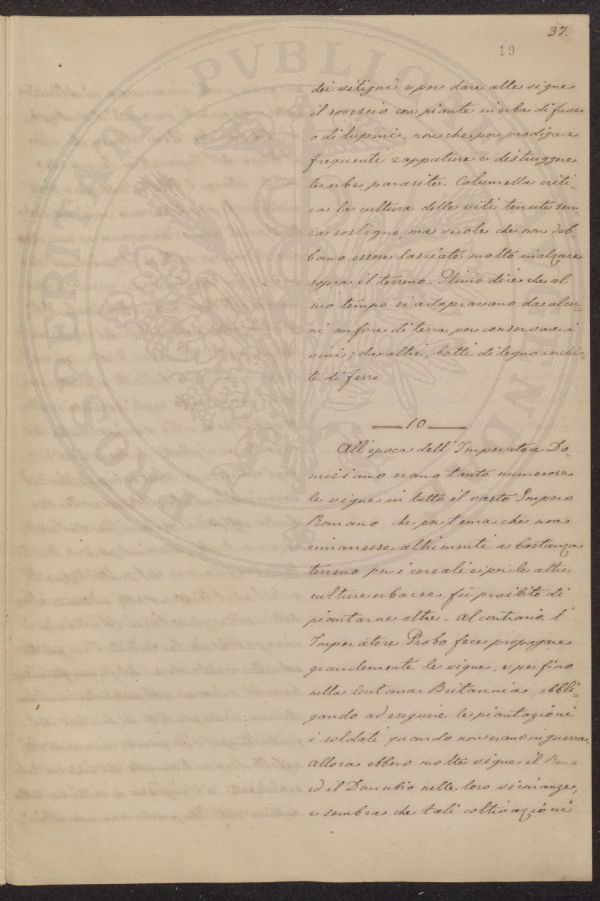 37.
19
dei vitigni e per dare alle vigne
il sovescio con piante in erba di fave
o di lupini, non che per prodigare
frequenti zappature e distruggere
le erbe parasite. Columella criti-
ca la cultura delle viti tenute sen-
za sostegno, ma vuole che non deb
bano essere lasciate molto inalzare
sopra il terreno. Plinio dice che al
suo tempo si adopravano da alcu-
ni anfore di terra per conservare i
vini; da altri, botti di legno cerchia-
te di ferro
10
All'epoca dell'Imperatore Do-
miziano erano tanto numerose
le vigne in tutto il vasto Impero
Romano che per tema che non
rimanesse altrimenti a bastanza
terreno per i cereali e per le altre
culture erbacee fu proibito di
piantarne altre. Al contrario, l'
Imperatore Probo fece propagare
grandemente le vigne, e perfino
nella lontana Britannia, obbli-
gando ad eseguire le piantazioni
i soldati quando non erano in guerra
Allora ebbero molte vigne il Reno
ed il Danubio nelle loro vicinanze,
e sembra che tali coltivazioni
PROSPERITATI PVBLICAE